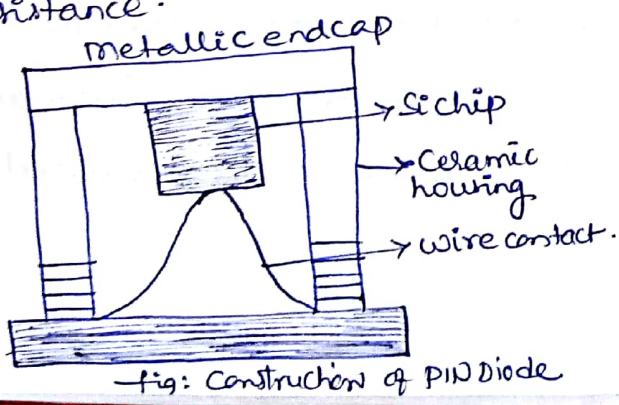 metallic endcap
Si chip
Ceramic
housing
wire contact.
fig: Construction of PIN Diode